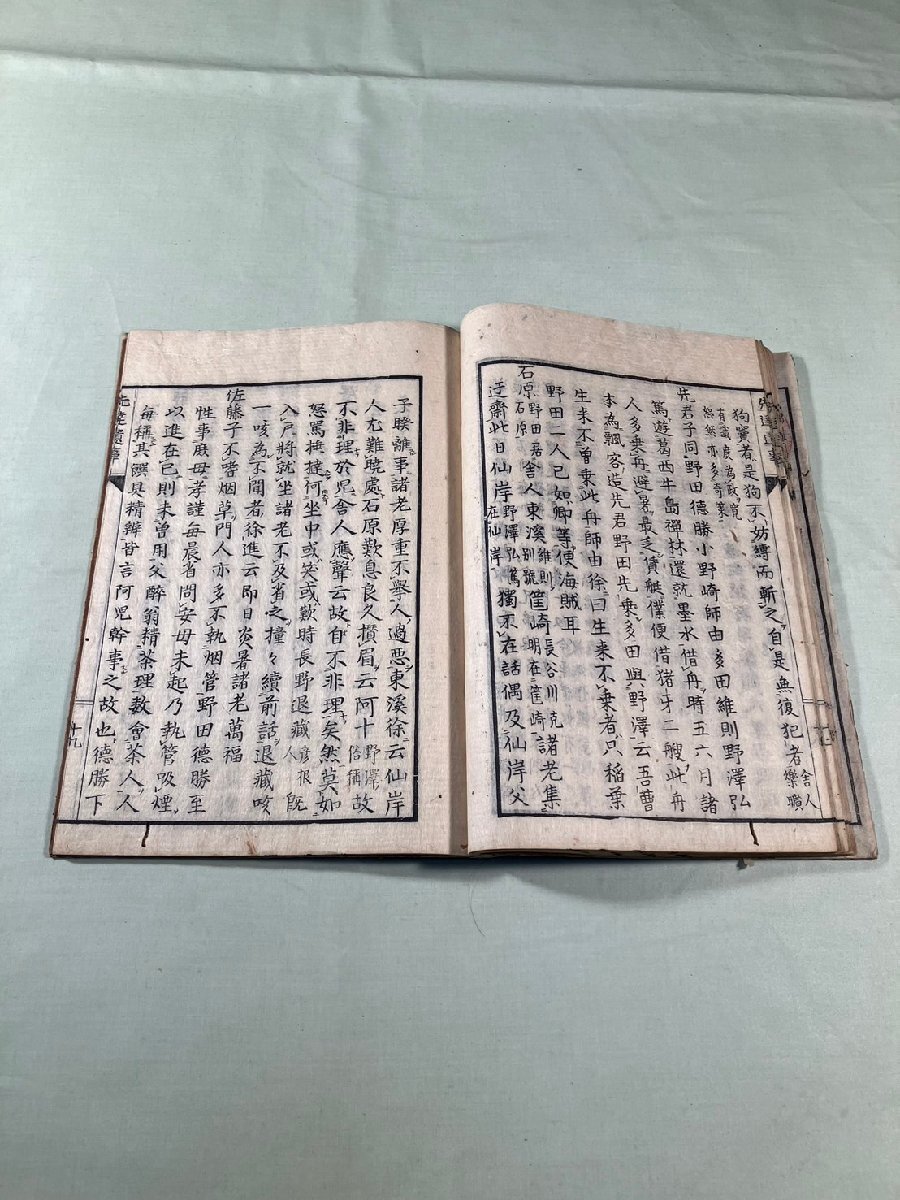 狗竇者是狗不妨縛而斬之自是無復犯者
舍人
樂順
先君子同野田德勝小野崎師由多田維則野澤弘
篤遊葛西牛島禪林還就墨水借舟時五六月諸
人多乘舟避暑最乏貨艇僕便借猪牙二艘此舟
本為飄客造先君野田先乘多田與野澤云吾曹
生来不曽乘此舟師由徐曰生来不乘者只稲葉
野田二人已如卿等便海賊耳
石原
野田居
石原
舍人東溪
維則
別號
筐崎
長谷川克
明在筐崎
諸老集
迂齋此日仙岸
野澤弘篤
在仙岸
獨不在話偶及仙岸父
子睽離事諸老厚重不舉人過惡東溪徐云仙岸
人尤難曉處石原歎息良久攅眉云阿十
野澤
俗稱
故
不非理於児舍人應聲云故自不非理矣然莫如
怒罵捶撻何坐中或笑或歎時長野退藏
彦根
人
既
入戸将就坐諸老不及省之撞々續前話退藏咳
一咳為不聞者徐進云即日炎暑諸老萬福
佐藤子不嗜烟草門人亦多不執烟管野田德勝至
性事庶母孝謹每晨省問安母未起乃執管吸煙
以進在已則未曽用父醉翁精茶理教會茶人人
每稱其饌具精辦母言阿児幹事之故也德勝下
先達遺事
十九